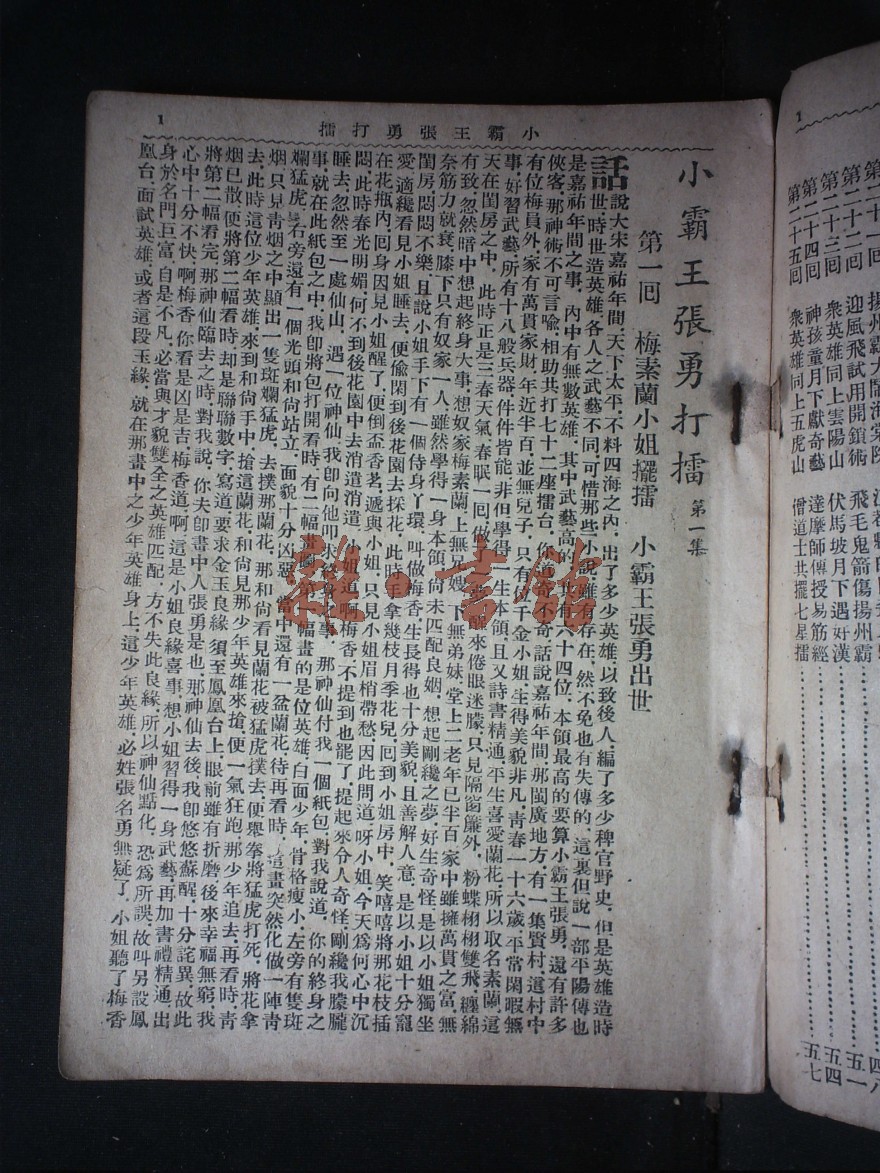 第二十一回 揚州霸大鬧海棠院
第二十二回 迎風飛試用開鎖術 飛毛鬼箭傷揚州霸
第二十三回 衆英雄同上雲陽山 伏馬坡月下遇好漢
第二十四回 神孩童月下獻奇藝 達摩師傳授易筋經
第二十五回 衆英雄同上五虎山 僧道士共擺七星擂
四八
五一
五四
五七
1
小霸王張勇打擂
1
小霸王張勇打擂 第一集
第一回 梅素蘭小姐擺擂 小霸王張勇出世
話說大宋嘉祐年間，天下太平，不料四海之內，出了多少英雄，以致後人編了多少稗官野史，但是英雄造時
世，時世造英雄，各人之武藝不同，可惜那些小說，雖有存在，然不免也有失傳的，這裏但說一部平陽傳也
是嘉祐年間之事，內中有無數英雄，其中武藝高的，共有六十四位，本領最高的要算小霸王張勇，還有許多
俠客，那神術不可言喩，相助共打七十二座擂台，你道奇不奇，話說嘉祐年間，那閩廣地方，有一集賢村，這村中
有位梅員外，家有萬貫家財，年近半百，並無兒子，只有位千金小姐，生得美貌非凡，靑春一十六歲，平常閑暇無
事，好習武藝，所有十八般兵器，件件皆能，非但學得一生本領，且又詩書精通，平生喜愛蘭花，所以取名素蘭，這
天在閨房之中，此時正是三春天氣，春眠一回，做了一夢，醒來倦眼迷朦，只見隔窗簾外，粉蝶栩栩雙飛，纏綿
有致，忽然暗中想起終身大事，想奴家梅素蘭上無兄嫂，下無弟妹，堂上二老年已半百，家中雖擁萬貫之富，無
奈筋力就衰，膝下只有奴家一人，雖然學得一身本領，尙未匹配良姻，想起剛纔之夢，好生奇怪，是以小姐獨坐
閨房，悶悶不樂，且說小姐手下有一個侍身丫環，叫做梅香，生長得也十分美貌，且善解人意，是以小姐十分寵
愛，適纔看見小姐睡去，便偸閑到後花園去採花，此時手拿幾枝月季花兒，囘到小姐房中，笑嘻嘻將那花枝插
在花瓶內，囘身因見小姐醒了，便倒盃香茗，遞與小姐，只見小姐眉梢帶愁，因此問道，呀小姐，今天爲何心中沉
悶，此時春光明媚，何不到後花園中去消遣消遣，小姐道，啊梅香，不提到也罷了，提起來令人奇怪，剛纔我朦朧
睡去，忽然至一處仙山，遇一位神仙，我卽向他叩求終身之事，那神仙付我一個紙包，對我說道，你的終身之
事，就在此紙包之中，我卽將包打開看時，有二幅畫圖，第一幅畫的是位英雄，白面少年，骨格瘦小，左旁有隻斑
斕猛虎，右旁還有一個光頭和尙站立，面貌十分凶惡，當中還有一盆蘭花，待再看時，這畫突然化做一陣靑
烟，只見靑烟之中，顯出一隻斑斕猛虎，去撲那蘭花，那和尙看見蘭花被猛虎撲去，便舉拳將猛虎打死，將花拿
去，此時這位少年英雄，來到和尙手中，搶這蘭花，和尙見那少年英雄來搶，便一氣狂跑，那少年追去，再看時，靑
烟已散，便將第二幅看時，却是聯聯數字，寫道，要求金玉良緣，須至鳳凰台上，眼前雖有折磨，後來幸福無窮，我
將第二幅看完，那神仙臨去之時，對我說，你夫卽畫中人張勇是也，那神仙去後，我卽悠悠蘇醒，十分詫異，故此
心中十分不快，啊梅香，你看是凶是吉，梅香道，啊，這是小姐良緣喜事，想小姐習得一身武藝，再加書禮精通，出
身於名門巨富，自是不凡，必當與才貌雙全之英雄匹配，方不失此良緣，所以神仙點化，恐爲所誤，故叫另設鳳
凰台，面試英雄，或者這段玉緣，就在那畫中之少年英雄身上，這少年英雄，必姓張名勇無疑了，小姐聽了梅香
雜·書館